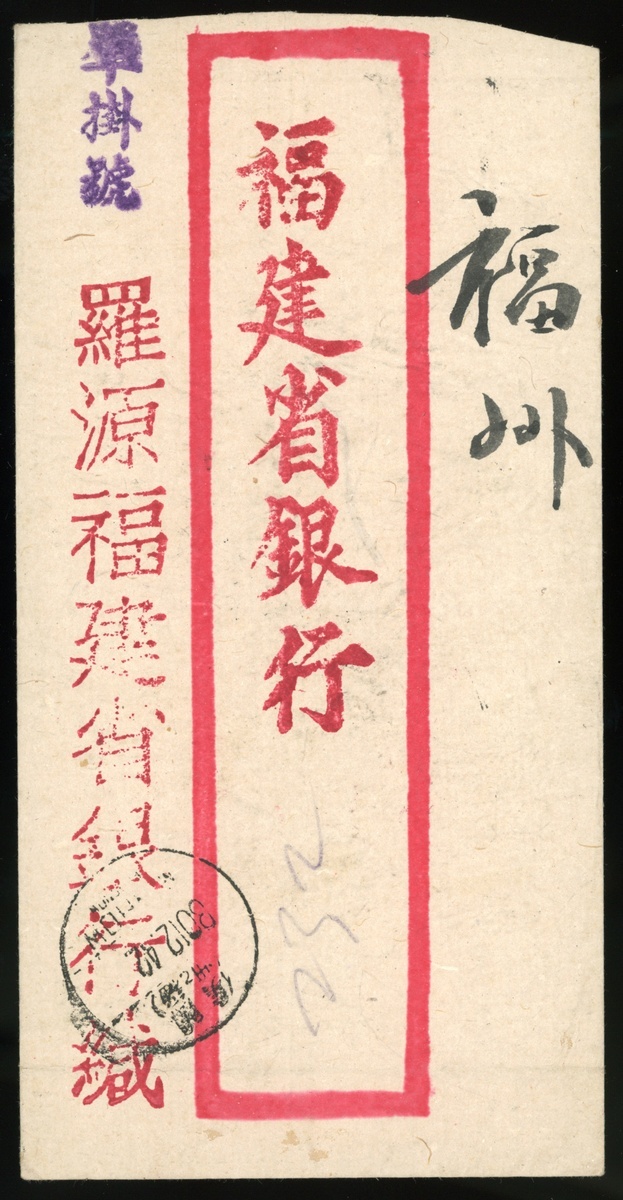 福州
福建省銀行
單掛號
羅源福建省銀行緘
30 12 42